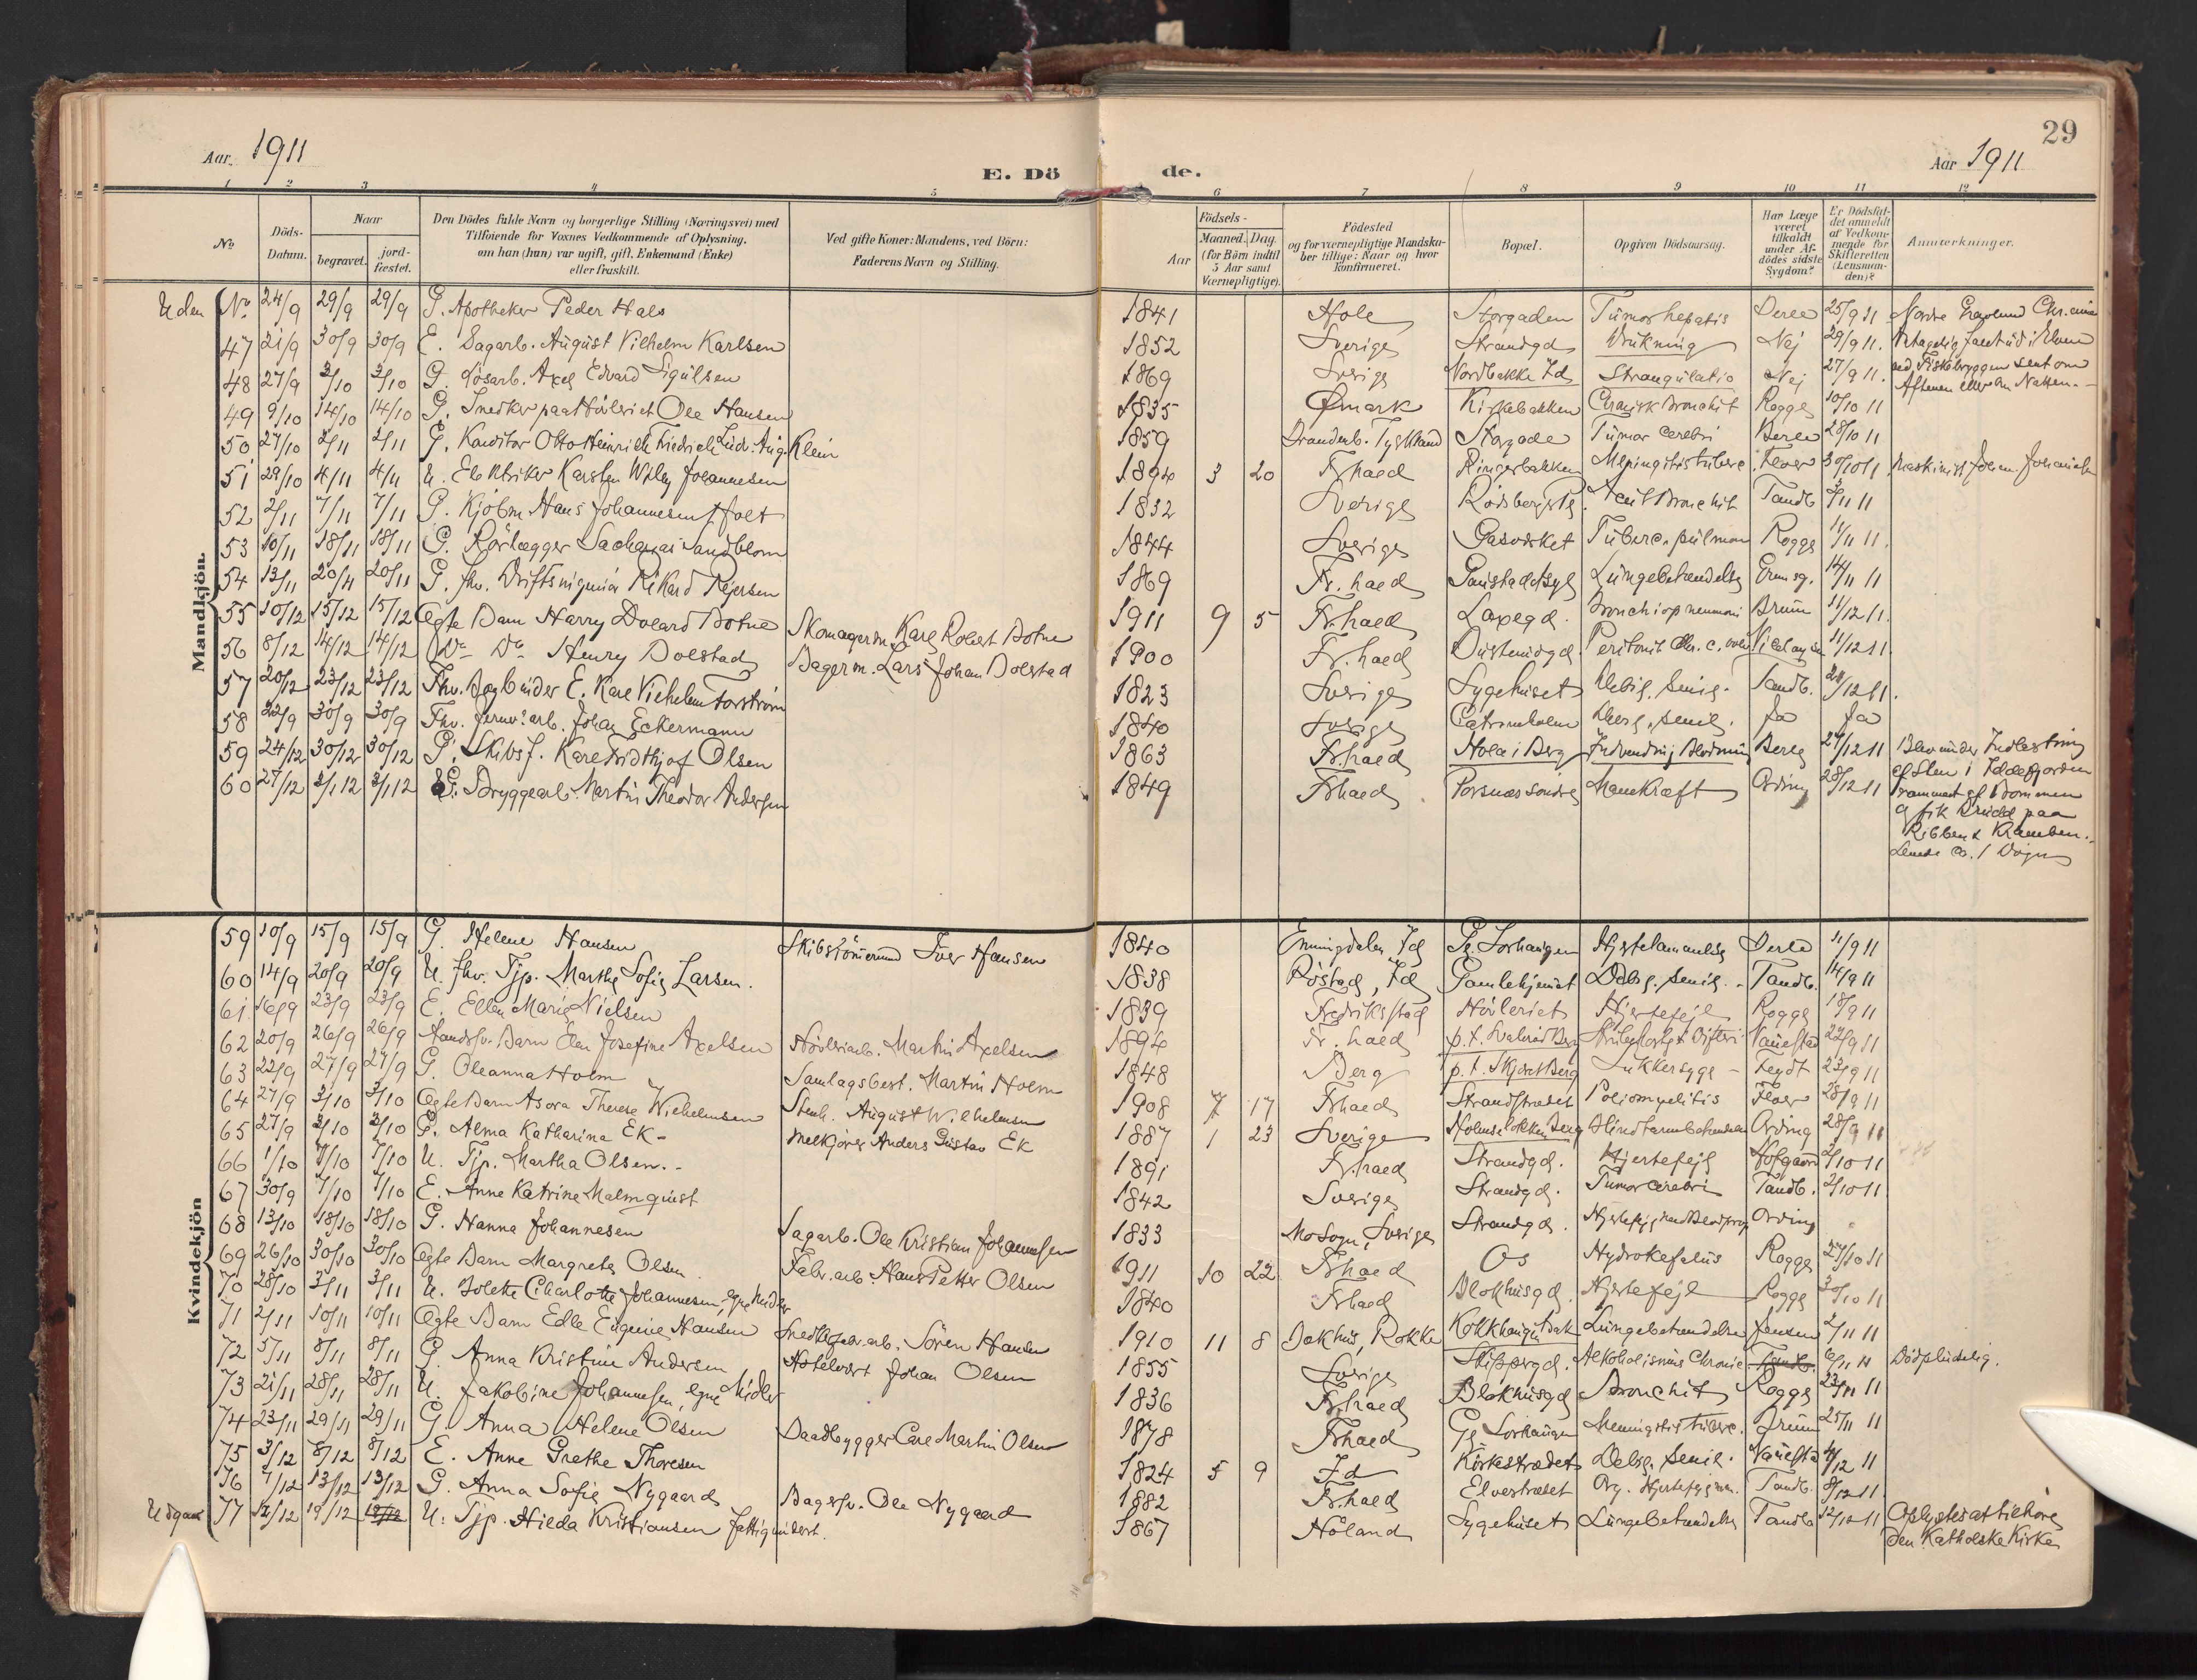 29
Aar 1911
E. Dö de.
Aar 1911
1 2 3 4 5 6 7 8 9 10 11 12
No
Döds-Datum.
Naar begravet. jordfæstet.
Den Dödes fulde Navn og borgerlige Stilling (Næringsvei) med Tilföiende for Voxnes Vedkommende af Oplysning, om han (hun) var ugift, gift, Enkemand (Enke) eller fraskilt.
Ved gifte Koner: Mandens, ved Börn: Faderens Navn og Stilling.
Födsels-
Aar Maaned. Dag. (for Börn indtil 5 Aar samt Værnepligtige).
Födested og for værnepligtige Mandskaber tillige: Naar og hvor konfirmeret.
Bopæl.
Opgiven Dödsaarsag.
Har Læge været tilkaldt under Afdödes sidste Sygdom?
Er Dödsfaldet anmeldt af Vedkommende for Skifteretten (Lensmanden)?
Anmærkninger.
Mandkjön.
Uden No 24/9 29/9 29/9 G. Apotheker Peder Hals 1841 Hole Storgaden Tumor hepatis 25/9 11 Nordre Gravlund Chr.ania
47 21/9 30/9 30/9 E. Sagarb. August Vilhelm Karlsen 1852 Sverige Strandgd Drukning Nej 29/9 11. Antagelig faldt ud i Elven
48 27/9 3/10 3/10 G. Løsarb. Axel Edvard Sigulsen 1869 Sverige Nordbakke Id Strangulatio Nej 27/9 11. ved Fiskebryggen sent om Aftenen eller om Natten.
49 9/10 14/10 14/10 G. Snedker paa Høvleriet Ole Hansen 1835 Ømark Kirkebakken Chronisk Bronchit Rogge 10/10 11
50 27/10 2/11 2/11 G. Konditor Otto Heinrich Friedrich Ludv. Aug. Klein 1859 Brandenb. Tyskland Storgade Tumor cerebri 28/10 11
51 29/10 4/11 4/11 U. Elektriker Karsten Wilh. Johannesen 1894 3 20 Frhald Ringerbakken Meningitis tuberc. 30/10 11 Maskinist Johan Johannesen
52 2/11 7/11 7/11 G. Kjøbm. Hans Johannesen Holt 1832 Sverige Rødsberg Acut Bronchit Tandb. 3/11 11
53 10/11 18/11 18/11 G. Rørlægger Sacharias Sandblom 1844 Sverige Gasværket Tuberc. pulmon Rogge 11/11 11.
54 13/11 20/11 20/11 G. fhv. Driftsingeniør Rikard Rejersen 1869 Fr.hald Gaustad Asyl Lungebetændelse 14/11 11
55 10/12 15/12 15/12 Ægte Barn Harry Edvard Botne Skomagerm. Karl Robert Botne 1911 9 5 Fr.hald Laxegd. Bronchiopneumoni Bruun 11/12 11.
56 8/12 14/12 14/12 Do Do Henry Bolstad Bagerm. Lars Johan Bolstad 1900 Fr.hald Peritonit 11/12 11
57 20/12 23/12 23/12 Fhv. Bogbinder E. Karl Vilhelm Forström 1823 Sverige Sygehuset Debig. senil. Tandb. 20/12 11.
58 22/9 30/9 30/9 Fhv. Jernv. arb. Johan Eckermann 1840 Sverige Catrineholm Debig. senil. Ja Ja
59 24/12 30/12 30/12 G. Skibsf. Karl Fridthjof Olsen 1863 Fr.hald Hola i Berg Indvendig Blødning 27/12 11 Blev under Indlastning
60 27/12 3/1 12 3/1 12 G. Bryggearb. Martin Theodor Andersen 1849 Frhald Porsnæs søndre Mavekræft Ording 28/12 11 af Sten i Iddefjorden
rammet af Bommen
og fik Brudd paa
Ribben & Kraveben.
Levede ca. 1 Døgn
Kvindekjön
59 10/9 15/9 15/9 G. Helene Hansen Skibstømmermd Iver Hansen 1840 Enningdalen, Id Gl. Sorhaugen Hjertelammelse 11/9 11
60 14/9 20/9 20/9 U. fhv. Tjp. Marthe Sofie Larsen. 1838 Røstad, Id Gamlehjemmet Debig. senil. Tandb. 14/9 11
61. 16/9 23/9 23/9 E. Ellen Marie Nielsen 1839 Fredriksstad Høvleriet Hjertefejl Rogge 18/9 11
62 20/9 26/9 26/9 Aandssv. Barn Elen Josefine Axelsen Høvleriarb. Martin Axelsen 1894 Fr.hald p.t. Berg Difteri 22/9 11
63 22/9 27/9 27/9 G. Oleanna Holm Samlagsbest. Martin Holm 1848 Berg p.t. Berg Sukkersyge 23/9 11
64 27/9 3/10 3/10 Ægte Barn Asora Therese Wilhelmsen Stenh. August Wilhelmsen 1908 7 17 Frhald Strandstrædet Poliomyelitis 28/9 11
65 27/9 3/10 3/10 G. Alma Katharina Ek Melkjører Anders Gustav Ek 1887 1 23 Sverige Blindtarmbetændelse Ording 28/9 11
66 1/10 7/10 7/10 U. Tjp. Martha Olsen. 1891 Fr.hald Strandgd. Hjertefejl Hofgaard 2/10 11
67 30/9 7/10 7/10 E. Anne Katrine Malmquist 1842 Sverige Strandgd. Tumor cerebri Tandb. 2/10 11
68 13/10 18/10 18/10 G. Hanna Johannesen Sagarb. Ole Kristian Johannesen 1833 Mo Sogn, Sverige Strandgd. Ording
69 26/10 30/10 30/10 Ægte Barn Margrete Olsen Fabr. arb. Hans Petter Olsen 1911 10 22 Frhald Os Hydrokefalus Rogge 27/10 11
70 28/10 3/11 3/11 U. Bolette Charlotte Johannesen, egne Midler 1840 Frhald Blokhusgd. Hjertefejl Rogge 30/10 11
71 2/11 10/11 10/11 Ægte Barn Edle Eugenie Hansen Sørén Hansen 1910 11 8 Bakhus, Rokke Lungebetændelse Jensen 2/11 11
72 5/11 8/11 8/11 G. Anna Kristine Andersen Hotelvært Johan Olsen 1855 Sverige Skippergd. Alkoholismus Chronic Tandb. 6/11 11 Död pludselig.
73 21/11 28/11 28/11 U. Jakobine Johannesen, egne Midler 1836 Fr.hald Blokhusgd Bronchit Rogge 23/11 11
74 23/11 29/11 29/11 G. Anna Helene Olsen Baadbygger Carl Martin Olsen 1878 Frhald Gl. Sorhaugen Meningitis tuberc. Bruun 25/11 11
75 3/12 8/12 8/12 E. Anne Grethe Thoresen 1824 5 9 Id Kirkestrædet Debig. senil. 4/12 11
76 7/12 13/12 13/12 G. Anna Sofie Nygaard Bagersv. Ole Nygaard 1882 Fr.hald Elvestrædet Org. Hjertefejl Tandb. 8/12 11.
Udgaar 77 12/12 19/12 U. Tjp. Hilda Kristiansen fattigunderst. 1867 Höland Sygehuset Lungebetændelse Tandb 12/12 11 Oplystes at tilhøre
den Katholske Kirke